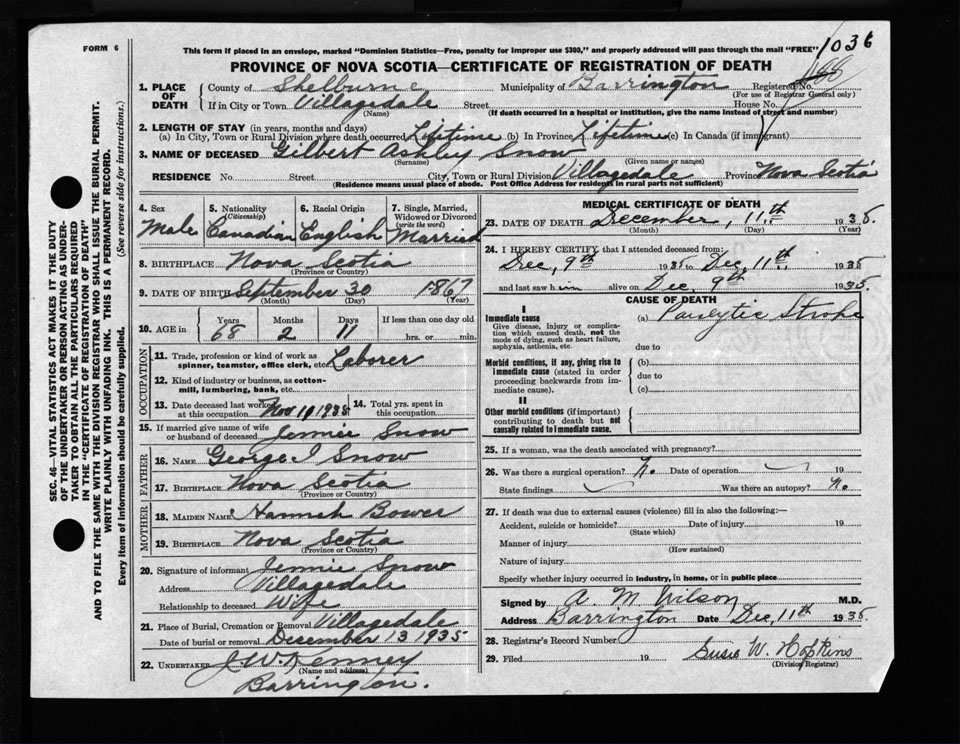 FORM 6
This form if placed in an envelope, marked "Dominion Statistics—Free, penalty for improper use $300," and properly addressed will pass through the mail "FREE"
1036
PROVINCE OF NOVA SCOTIA—CERTIFICATE OF REGISTRATION OF DEATH
1. PLACE OF DEATH
County of Shelburne Municipality of Barrington Registered No.
(For use of Registrar General only)
If in City or Town Villagedale Street House No.
(Name) (If death occurred in a hospital or institution, give the name instead of street and number)
2. LENGTH OF STAY (in years, months and days)
(a) In City, Town or Rural Division where death occurred Lifetime (b) In Province Lifetime (c) In Canada (if immigrant)
3. NAME OF DECEASED Gilbert Ashley Snow
(Surname) (Given name or names)
RESIDENCE No. Street City, Town or Rural Division Villagedale Province Nova Scotia
(Residence means usual place of abode. Post Office Address for residents in rural parts not sufficient)
4. Sex Male
5. Nationality (Citizenship) Canadian
6. Racial Origin English
7. Single, Married, Widowed or Divorced (write the word) Married
8. BIRTHPLACE Nova Scotia
(Province or Country)
9. DATE OF BIRTH September 30 1867
(Month) (Day) (Year)
10. AGE in Years Months Days If less than one day old
68 2 11 hrs. or min.
OCCUPATION
11. Trade, profession or kind of work as spinner, teamster, office clerk, etc. Laborer
12. Kind of industry or business, as cotton-mill, lumbering, bank, etc.
13. Date deceased last worked at this occupation Nov 1935
14. Total yrs. spent in this occupation
15. If married give name of wife or husband of deceased Jennie Snow
FATHER
16. NAME George I Snow
17. BIRTHPLACE Nova Scotia
(Province or Country)
MOTHER
18. MAIDEN NAME Hannah Bower
19. BIRTHPLACE Nova Scotia
(Province or Country)
20. Signature of informant Jennie Snow
Address Villagedale
Relationship to deceased Wife
21. Place of Burial, Cremation or Removal Villagedale
Date of burial or removal December 13 1935
22. UNDERTAKER J W Kenney
(Name and address)
Barrington.
MEDICAL CERTIFICATE OF DEATH
23. DATE OF DEATH December, 11th 1935.
(Month) (Day) (Year)
24. I HEREBY CERTIFY, that I attended deceased from:
Dec, 9th 1935 to Dec, 11th 1935
and last saw him alive on Dec, 9th 1935.
CAUSE OF DEATH
I
Immediate cause
Give disease, injury or complication which caused death, not the mode of dying, such as heart failure, asphyxia, asthenia, etc.
(a) Paralytic Stroke
due to
Morbid conditions, if any, giving rise to immediate cause (stated in order proceeding backwards from immediate cause).
(b)
due to
(c)
II
Other morbid conditions (if important) contributing to death but not causally related to immediate cause.
25. If a woman, was the death associated with pregnancy?
26. Was there a surgical operation? N. Date of operation 19
State findings Was there an autopsy? No.
27. If death was due to external causes (violence) fill in also the following:—
Accident, suicide or homicide? Date of injury 19
(State which)
Manner of injury
(How sustained)
Nature of injury
Specify whether injury occurred in industry, in home, or in public place
Signed by A M Wilson M.D.
Address Barrington Date Dec, 11th 1935.
28. Registrar's Record Number
29. Filed 19 Susie W. Hopkins
(Division Registrar)
SEC. 46—VITAL STATISTICS ACT MAKES IT THE DUTY
OF THE UNDERTAKER OR PERSON ACTING AS UNDER-
TAKER TO OBTAIN ALL THE PARTICULARS REQUIRED
IN THE "CERTIFICATE OF REGISTRATION OF DEATH"
AND TO FILE THE SAME WITH THE DIVISION REGISTRAR WHO SHALL ISSUE THE BURIAL PERMIT.
WRITE PLAINLY WITH UNFADING INK. THIS IS A PERMANENT RECORD.
Every item of information should be carefully supplied. (See reverse side for instructions.)